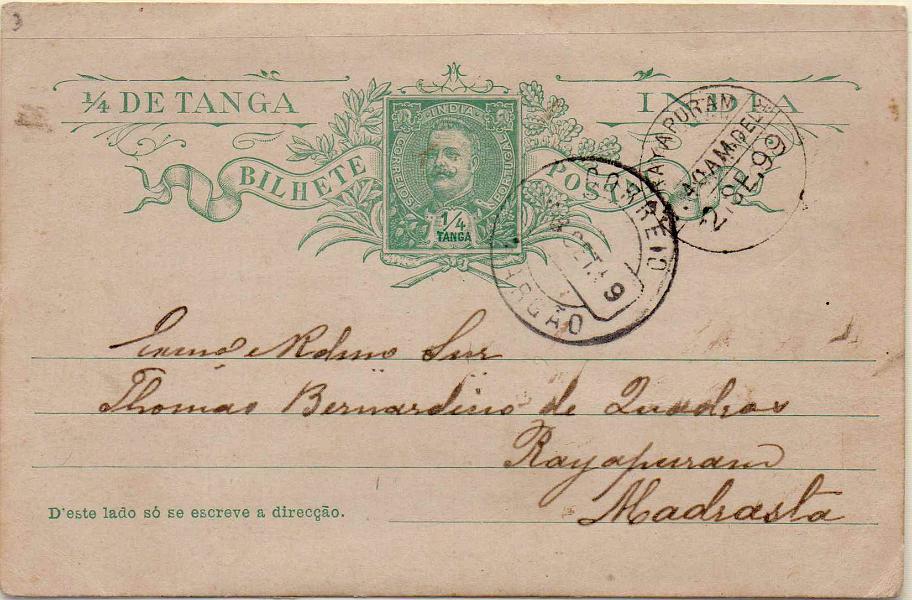 ¼ DE TANGA
INDIA
BILHETE POSTAL
CORREIOS INDIA PORTUGUEZA
¼
TANGA
RAYAPURAM
2 SE. 99
CORREIO
MARGÃO
Exmo e Rdmo Snr
Thomas Bernardino de Quadros
Rayapuram
Madrasta
D'este lado só se escreve a direcção.